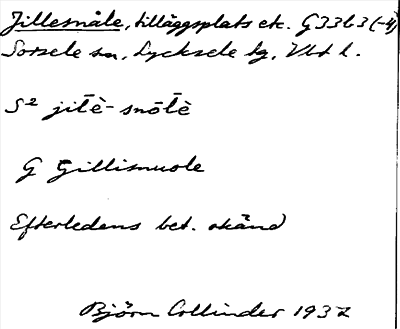 Jillesnåle, tilläggsplats etc. G33b3(-4)
Sorsele sn, Lycksele lg, Vbt l.
S² jitè-snōtè
G Gillismuole
Efterledens bet. okänd
Björn Collinder 1937